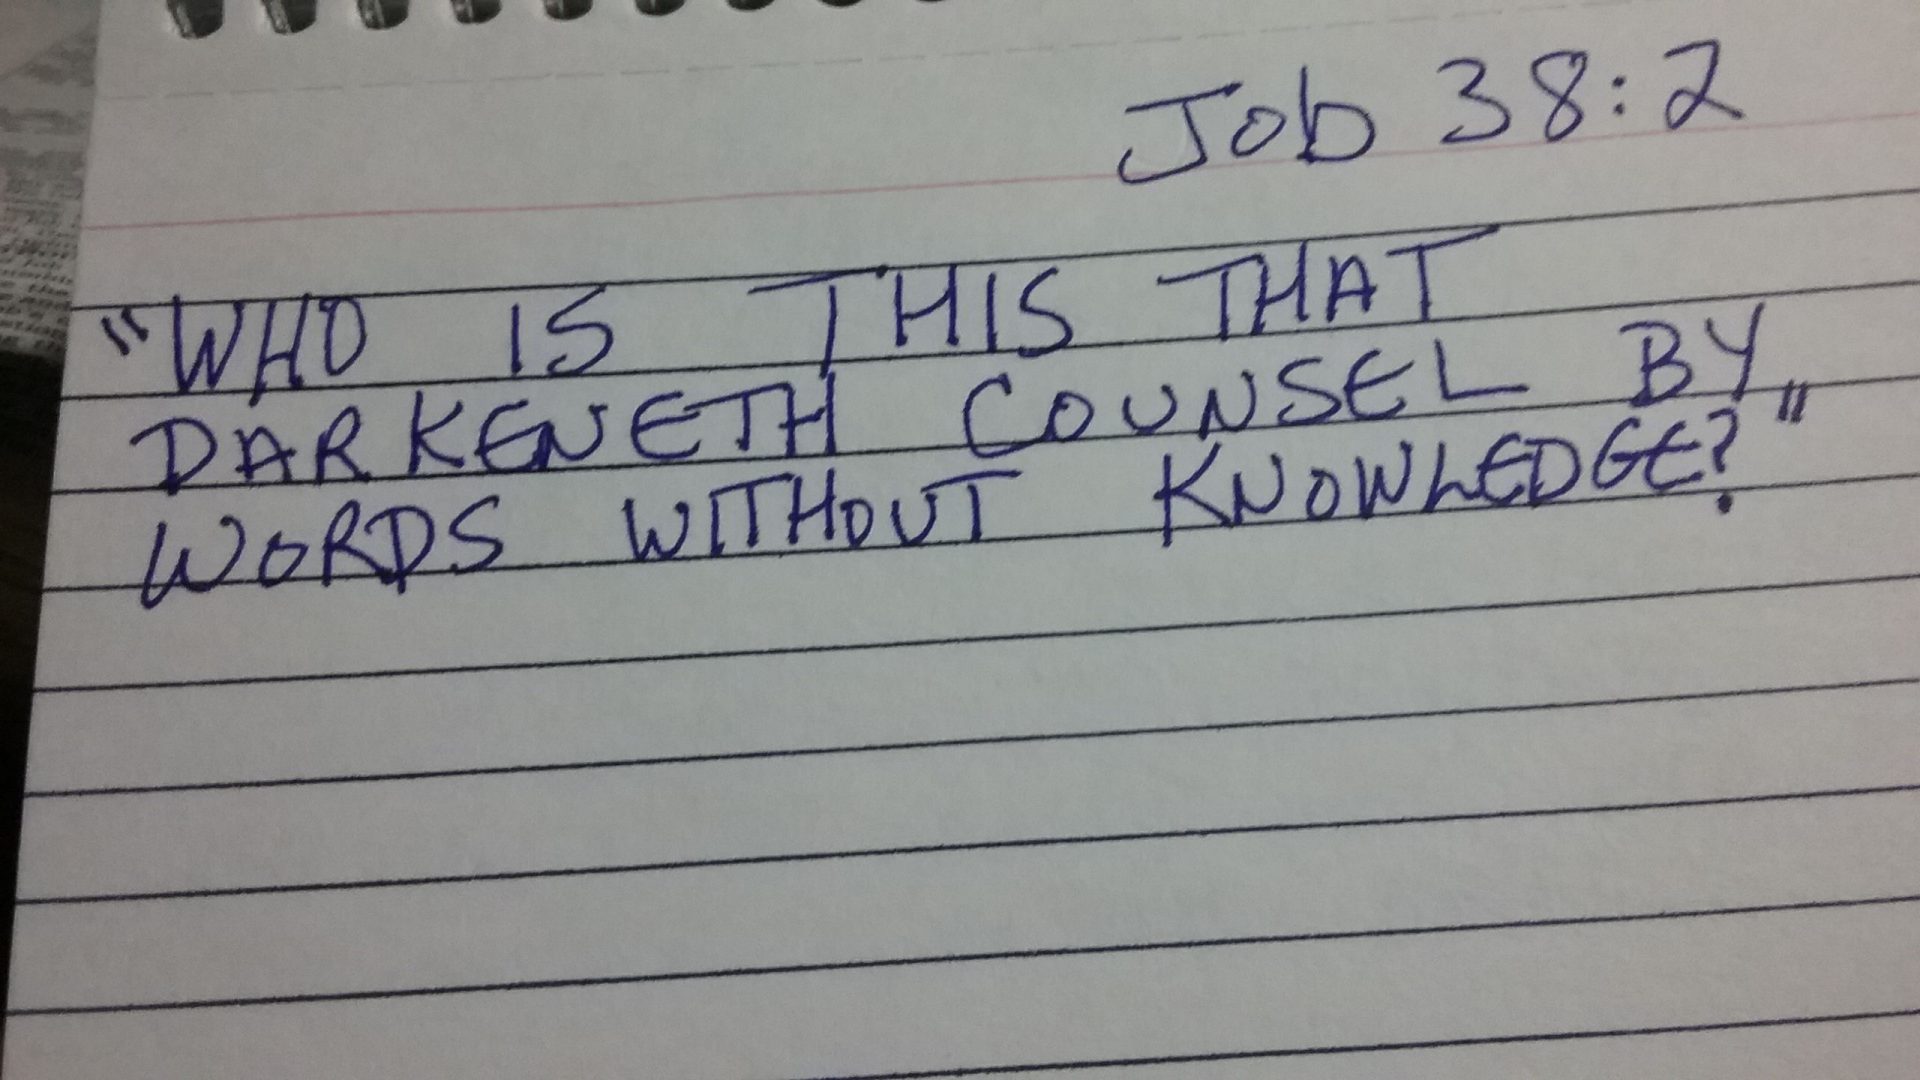 Job 38:2
"WHO IS THIS THAT
DARKENETH COUNSEL BY
WORDS WITHOUT KNOWLEDGE?"